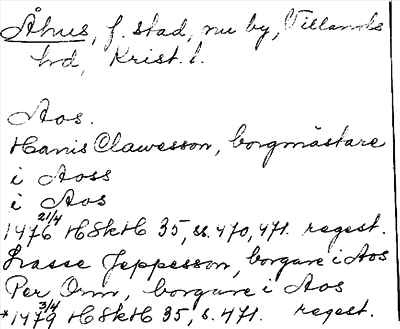 Åhus, f. stad, nu by, Villands
hd, Krist. l.
Aos.
Hanis Clawesson, borgmästare
i Aoss
i Aos
1476 21/4 HSkH 35, ss. 470, 471. regest.
Lasse Jeppesson, borgare i Aos
Per Orm, borgare i Aos
*1479 3/4 HSkH 35, s. 471. regest.